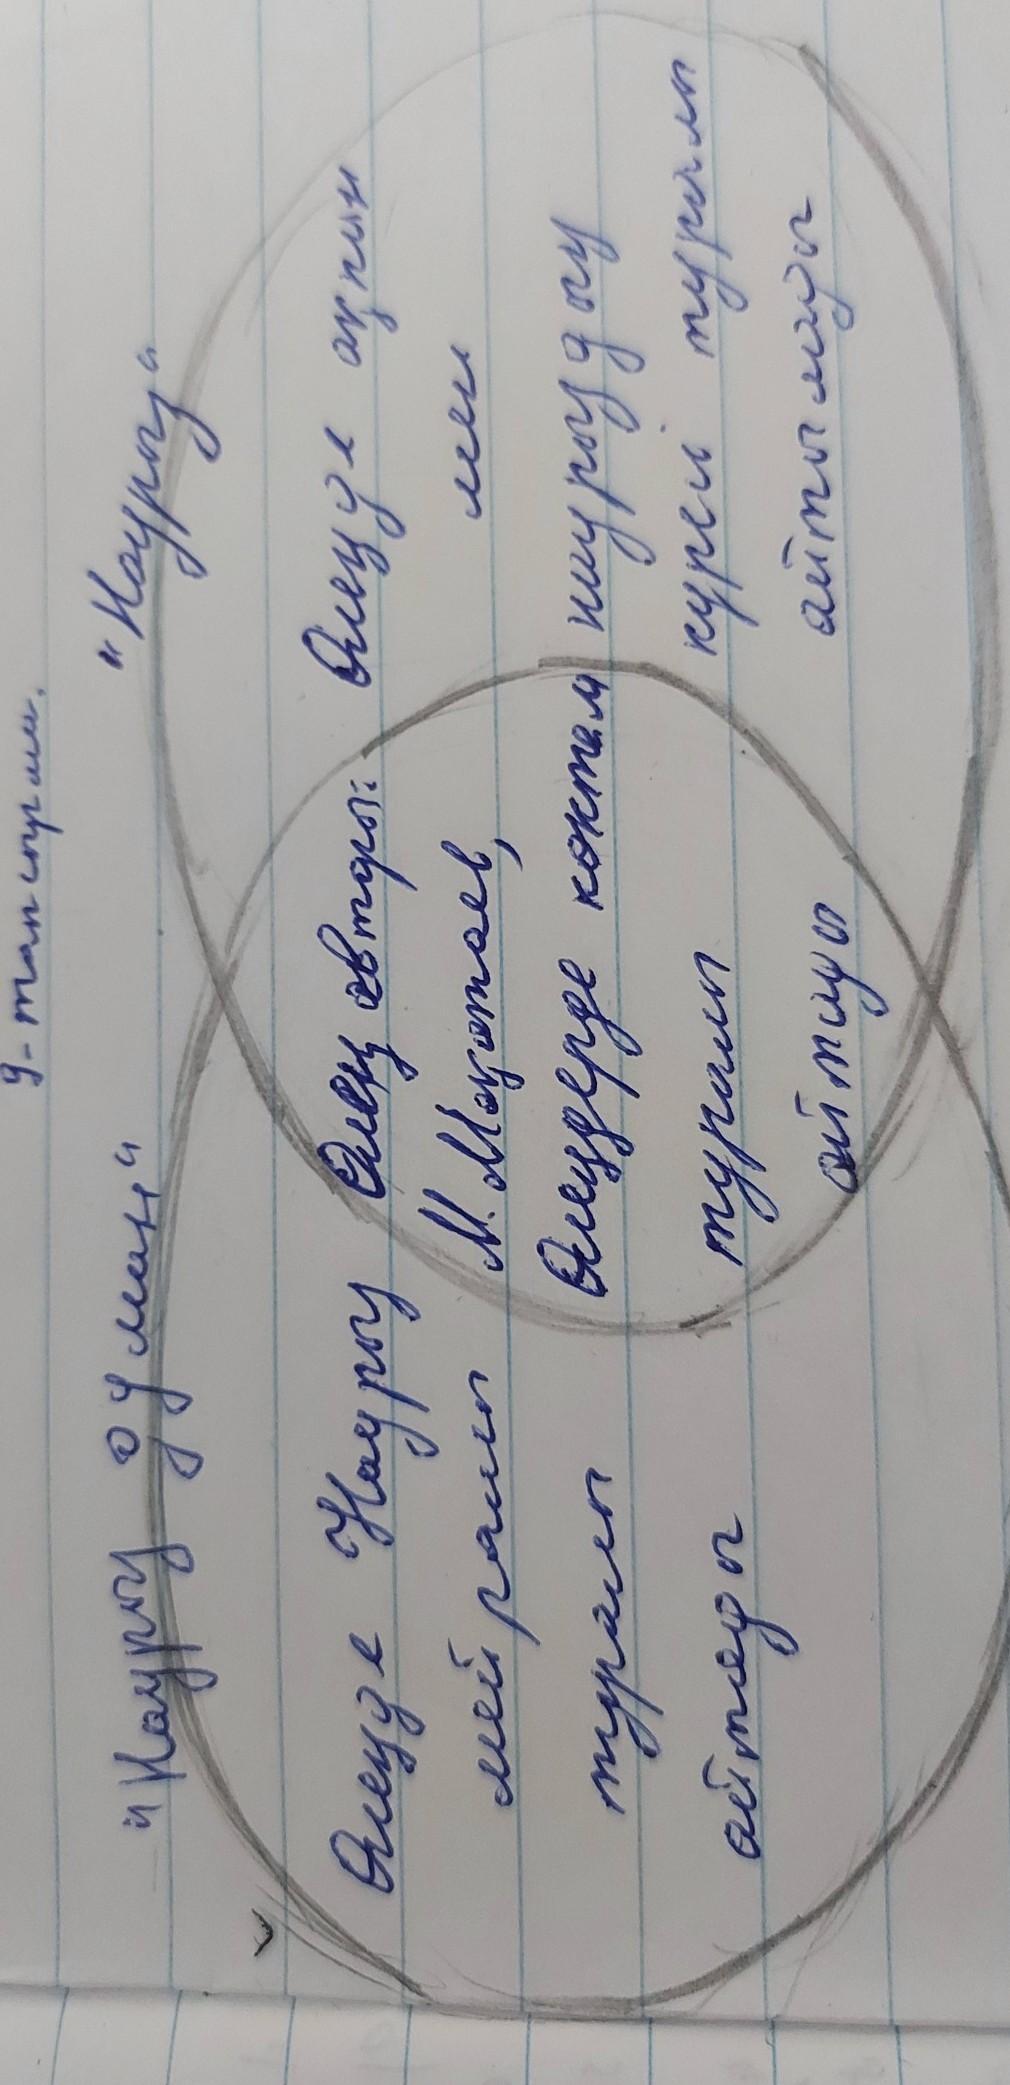 9-тапсырма.
"Наурыз думан"
"Наурыз"
Өлеңде Наурыз
мейрамы
туралы
айтады
Өлең авторы:
М. Мақатаев,
Өлеңдерде көктем
туралы
айтады
Өлеңде ақын
мен
наурыздың
күрең туралы
айтылады